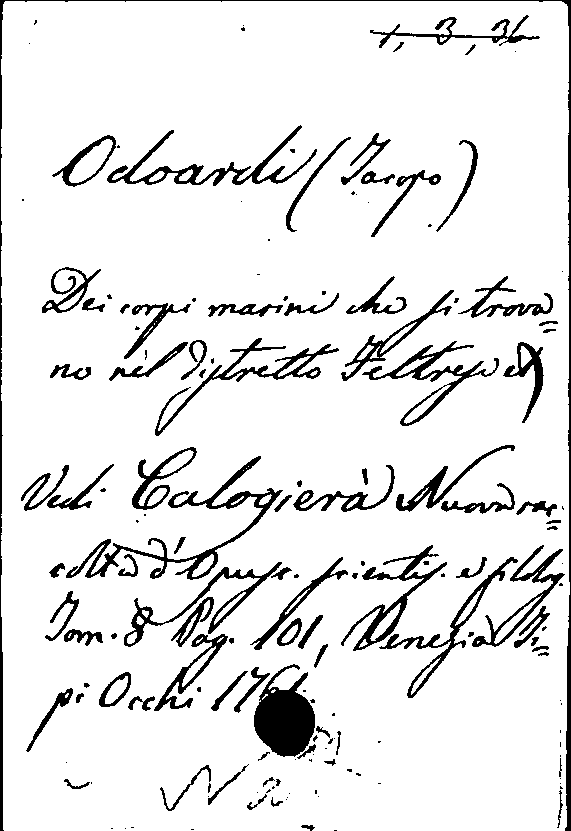 1, 3, 36
Odoardi (Jacopo)
Dei corpi marini che si trova=
no nel distretto Feltrese
Vedi Calogierà Nuova rac=
colta d'Opusc. scientif. e filolog.
Tom. 8 Pag. 101, Venezia Ti=
pi Occhi 1761.